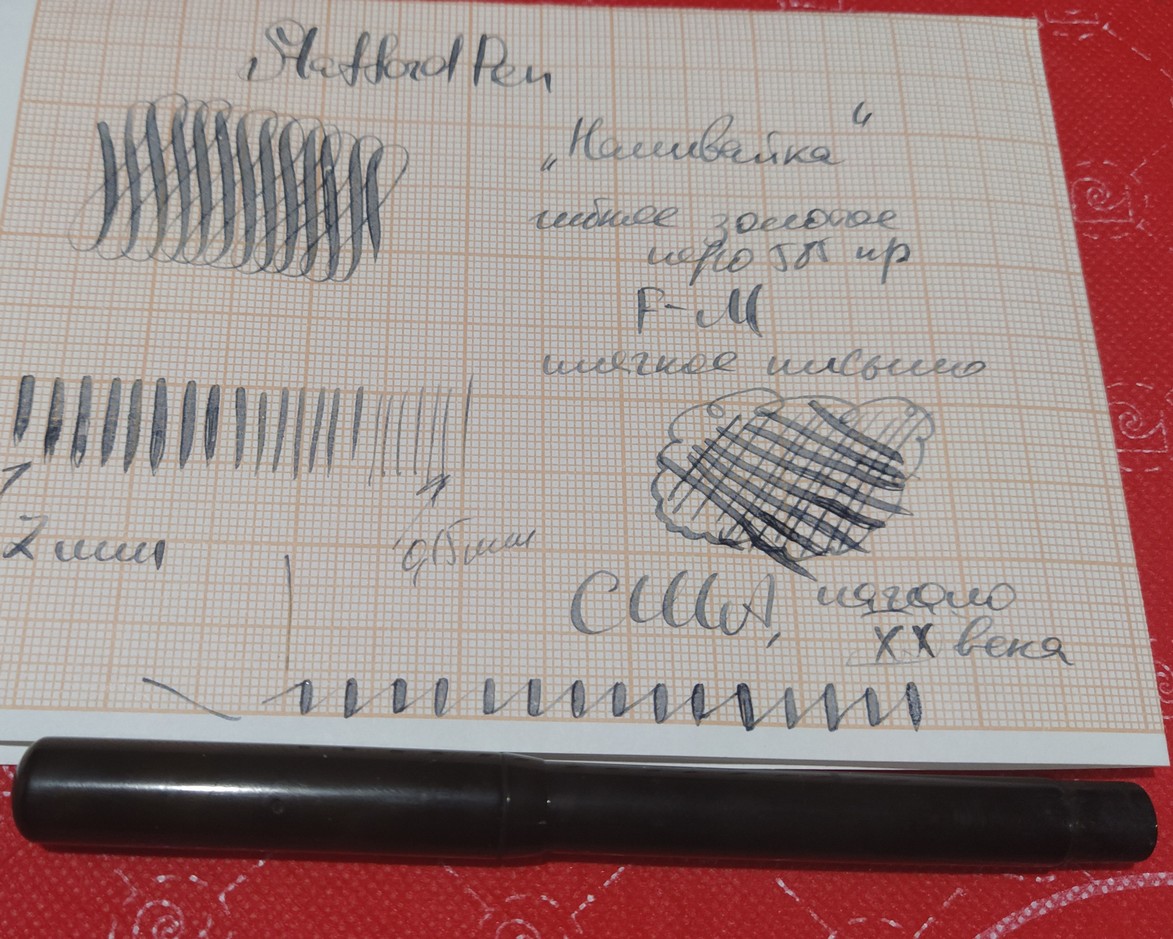 Stafford Pen
„Наливайка“
гибкое золотое
перо 585 пр
F-M
мягкое письмо
2 мм
0,15 мм
США, начало
XX века